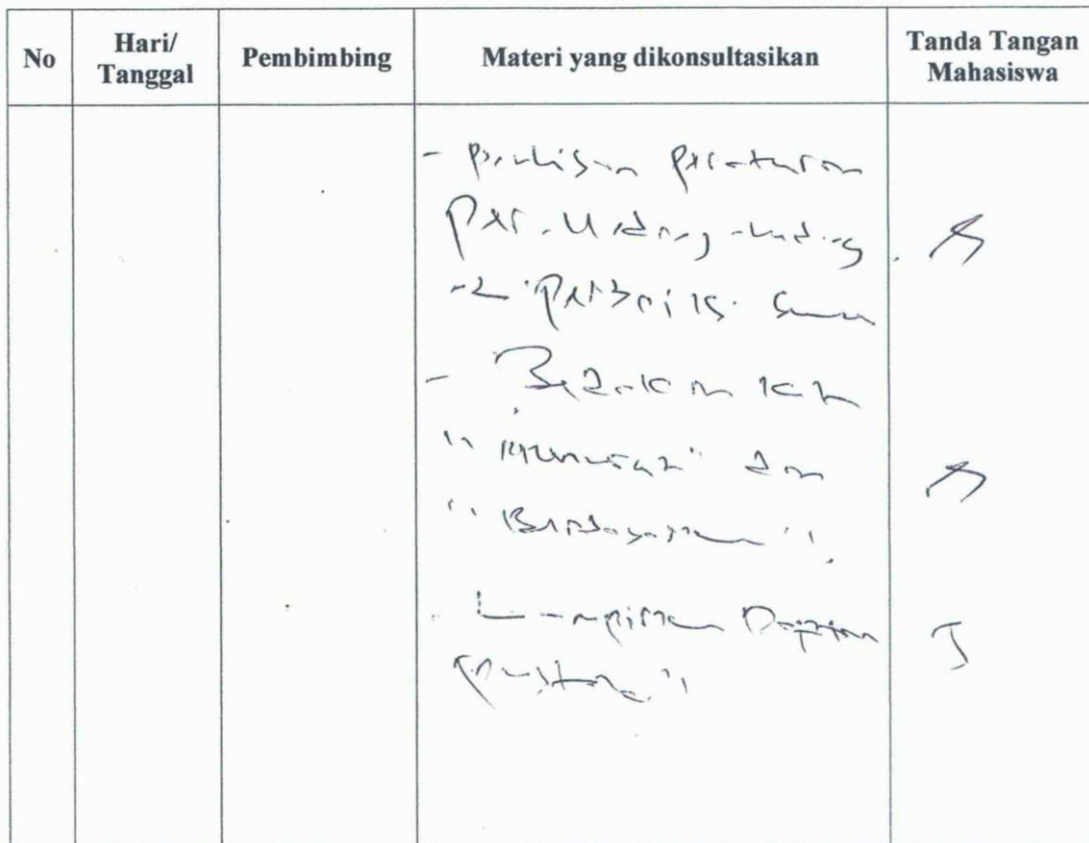 No
Hari/
Tanggal
Pembimbing
Materi yang dikonsultasikan
Tanda Tangan
Mahasiswa
- penulisan peraturan
per-Undang-undang
di perbaiki
- Bedakan
" dan
"
- Lampirkan Daftar
pustaka "